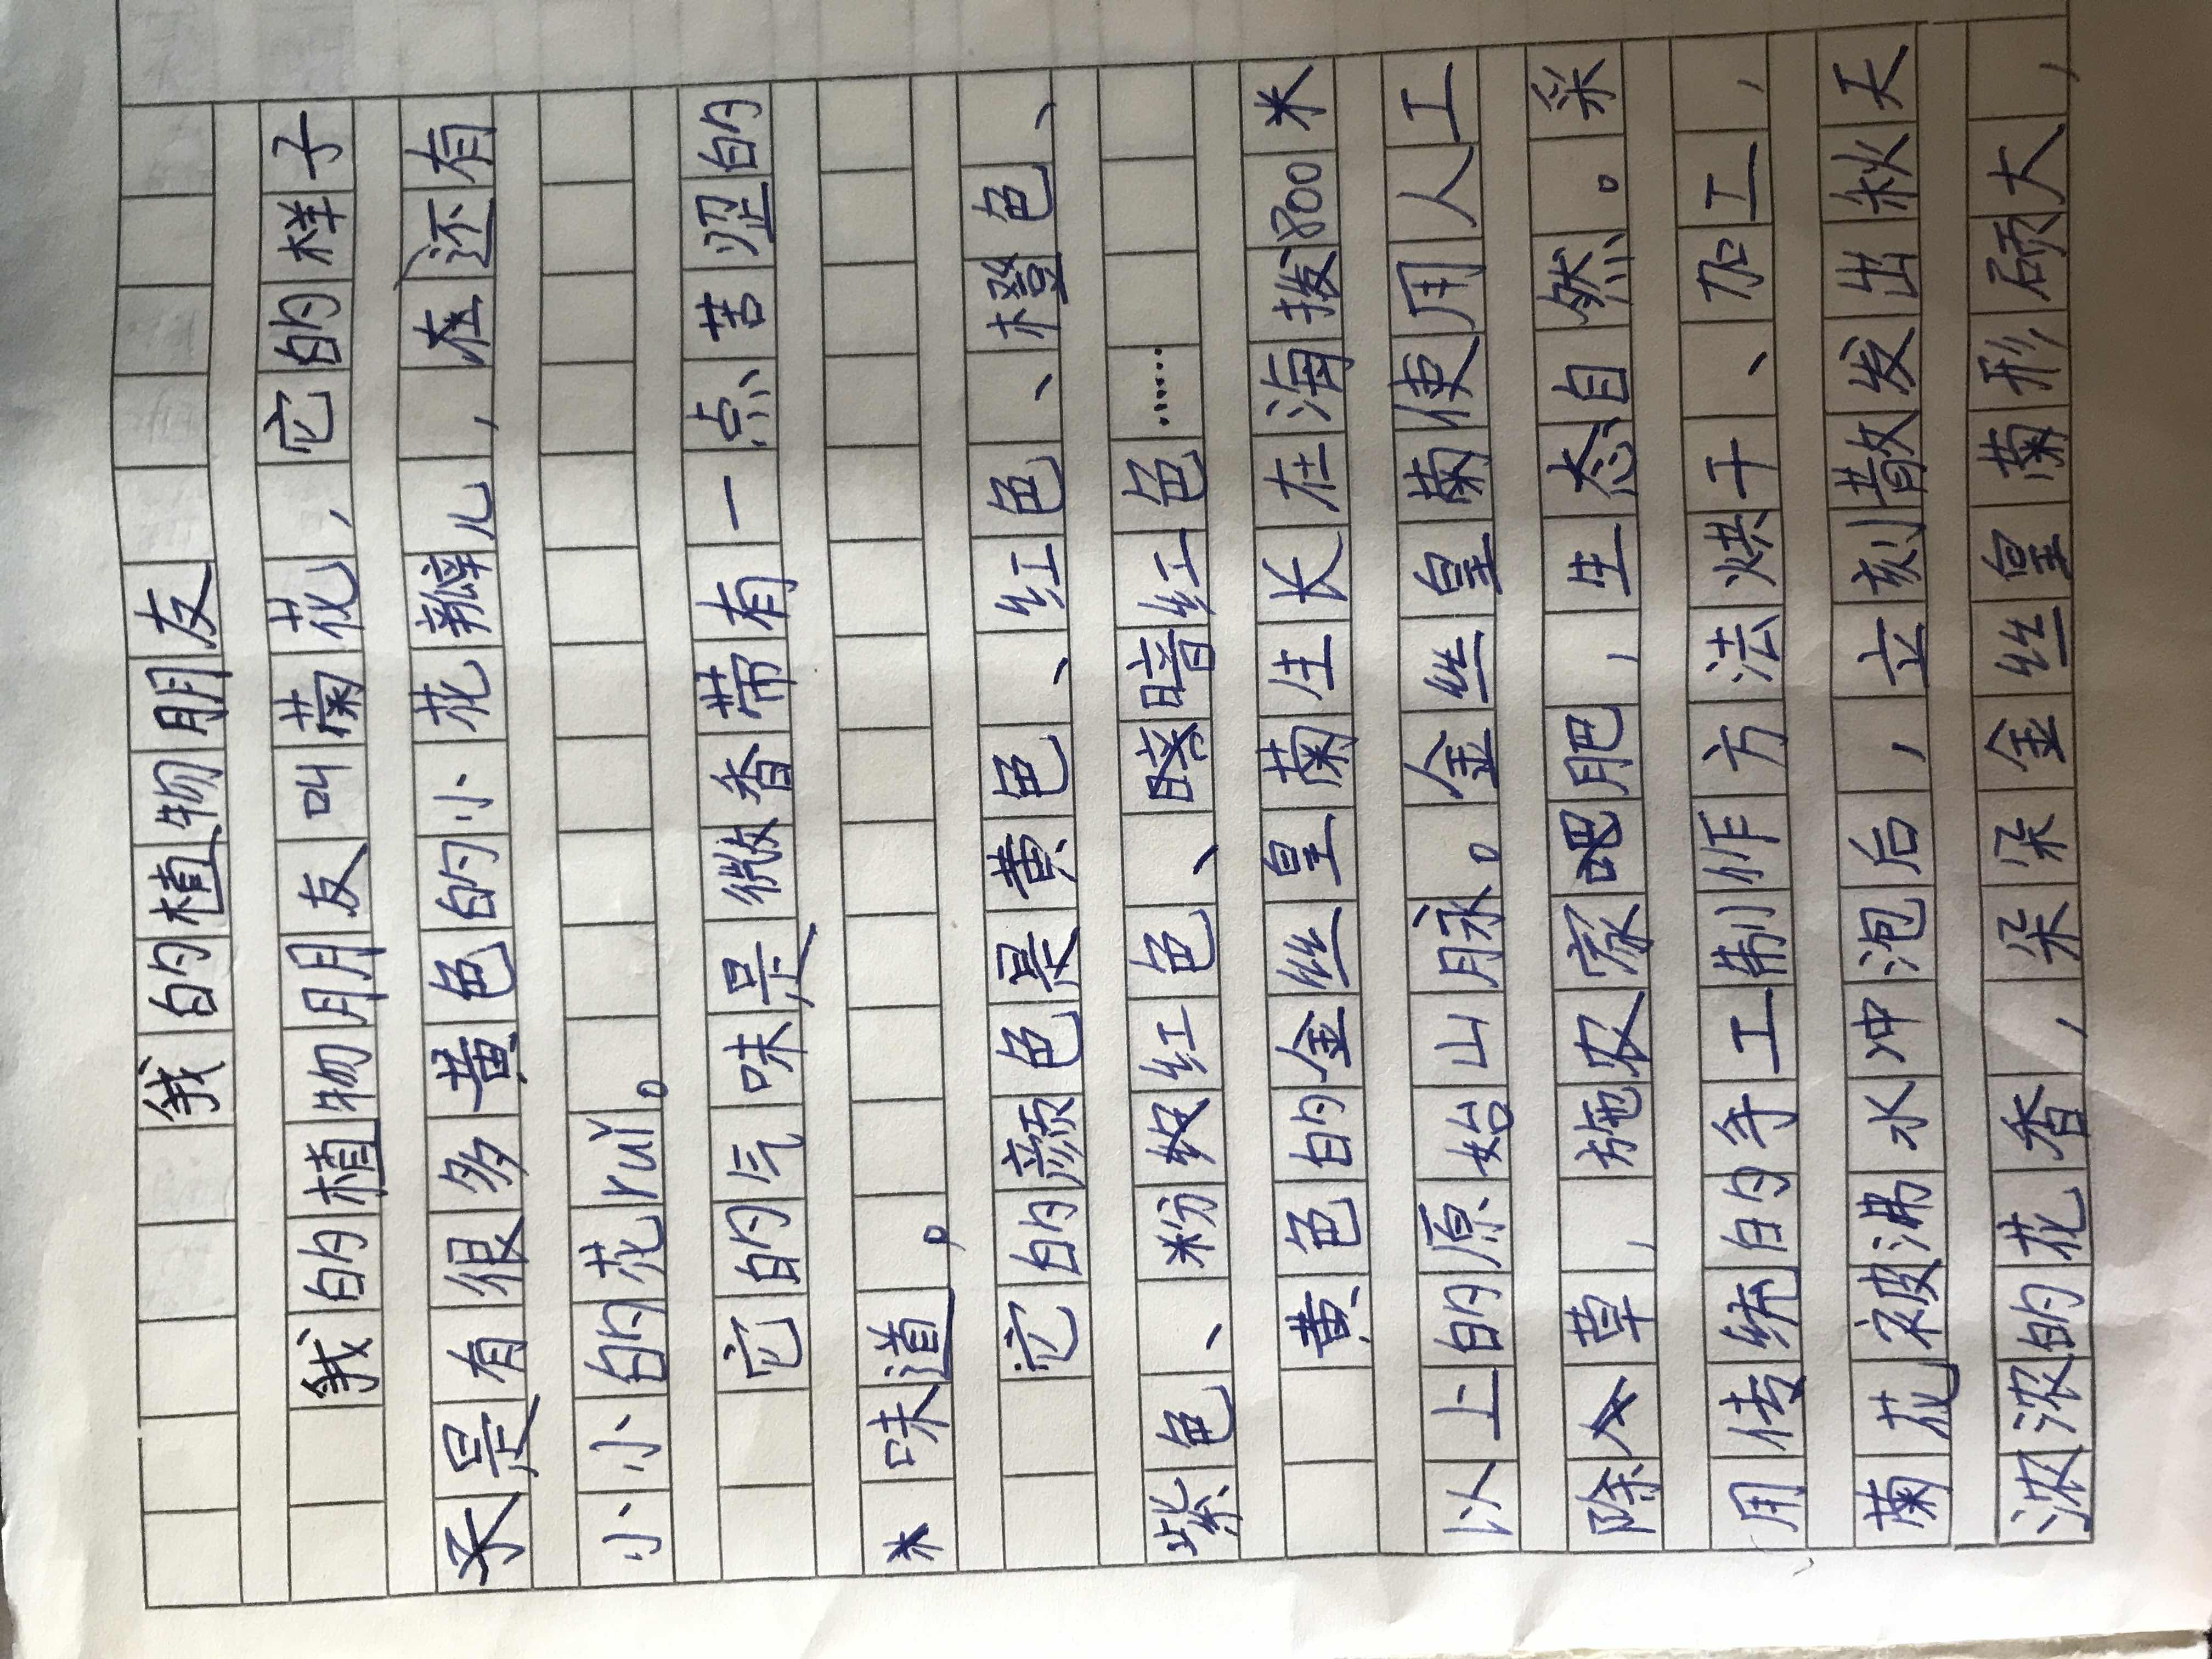 我的植物朋友
我的植物朋友叫菊花，它的样子
是有很多黄色的小花瓣儿，在还有
小小的花ruǐ。
它的气味是微香带有一点苦涩的
味道。
它的颜色是黄色、红色、橙色、
紫色、粉红色、暗红色……
黄色的金丝皇菊生长在海拨800米
以上的原始山脉。金丝皇菊使用人工
除草，施农家肥，生态自然。采
用传统的手工制作方法烘干、加工，
菊花被沸水冲泡后，立刻散发出秋天
浓浓的花香，朵朵金丝皇菊形硕大，